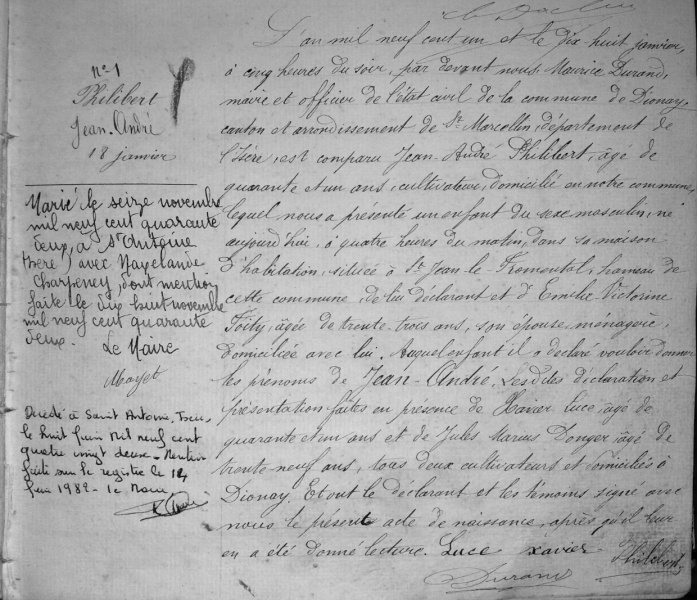 N° 1
Philibert
Jean-André
18 janvier
Marié le seize novembre
mil neuf cent quarante
deux, à St Antoine
Isère) avec
Charpenay, dont mention
faite le dix huit novembre
mil neuf cent quarante
deux. Le Maire
Décédé à Saint Antoine, Isère,
le huit juin Mil neuf cent
quatre vingt deux. Mention
faite sur le registre le 14
juin 1982 - Le Maire
L'an mil neuf cent un et le dix huit janvier,
à cinq heures du soir, par devant nous Maurice Durand,
maire et officier de l'état civil de la commune de Dionay,
canton et arrondissement de St Marcellin, département de
l'Isère, est comparu Jean-André Philibert, âgé de
quarante et un ans, cultivateur, domicilié en notre commune,
lequel nous a présenté un enfant du sexe masculin, né
aujourd'hui, à quatre heures du matin, dans sa maison
d'habitation, située à St Jean le Fromental, hameau de
cette commune, de lui déclarant et d'Emilie Victorine
âgée de trente-trois ans, son épouse, ménagère,
domiciliée avec lui. Auquel enfant il a déclaré vouloir donner
les prénoms de Jean-André. Lesdites déclaration et
présentation faites en présence de Xavier Luce, âgé de
quarante et un ans et de Jules Marius Donger, âgé de
trente-neuf ans, tous deux cultivateurs et domiciliés à
Dionay. Et ont le déclarant et les témoins signé avec
nous le présent acte de naissance, après qu'il leur
en a été donné lecture. Luce xavier Philibert
Durand